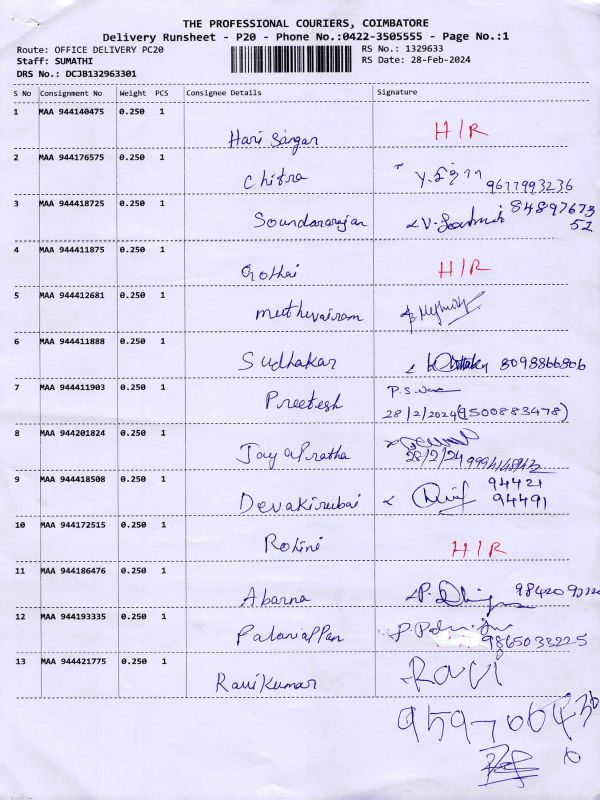 THE PROFESSIONAL COURIERS, COIMBATORE
Delivery Runsheet - P20 - Phone No.:0422-3505555 - Page No.:1
Route: OFFICE DELIVERY PC20 RS No.: 1329633
Staff: SUMATHI RS Date: 28-Feb-2024
DRS No.: DCJB132963301
S No Consignment No Weight PCS Consignee Details Signature
1 MAA 944140475 0.250 1
Hari Sangar H/R
2 MAA 944176575 0.250 1
Chitra 9677993236
3 MAA 944418725 0.250 1 84897673
Soundararajan 52
4 MAA 944411875 0.250 1
Gothai H/R
5 MAA 944412681 0.250 1
muthuvairam
6 MAA 944411888 0.250 1
Sudhakar 8098866806
7 MAA 944411903 0.250 1 P.S.
Preetesh 28/2/2024 (9500883478)
8 MAA 944201824 0.250 1
Jaya Pratha 28/2/24
9 MAA 944418508 0.250 1 94421
Devakirubai 94491
10 MAA 944172515 0.250 1
Rohini H/R
11 MAA 944186476 0.250 1
Abarna
12 MAA 944193335 0.250 1
Palaniappan 9865033225
13 MAA 944421775 0.250 1 Ravi
RaviKumar